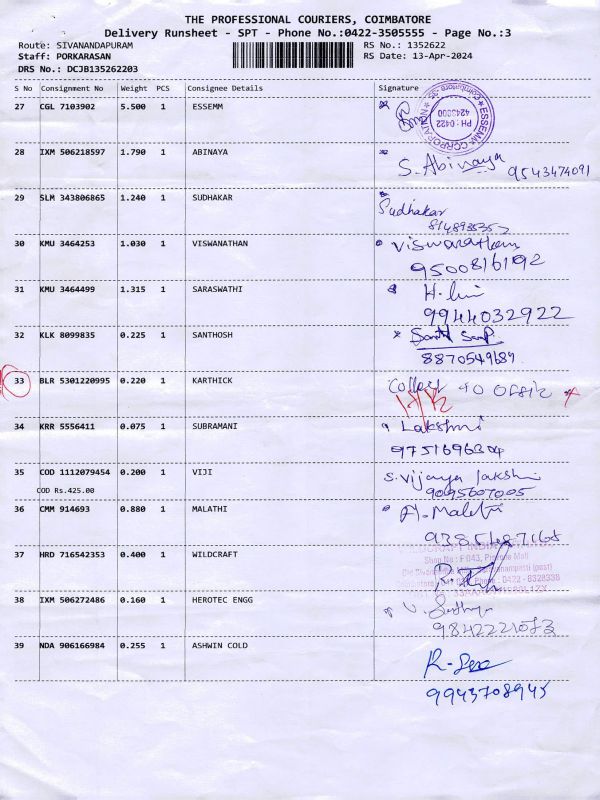 THE PROFESSIONAL COURIERS, COIMBATORE
Delivery Runsheet - SPT - Phone No.:0422-3505555 - Page No.:3
Route: SIVANANDAPURAM
RS No.: 1352622
Staff: PORKARASAN
RS Date: 13-Apr-2024
DRS No.: DCJB135262203
S No Consignment No Weight PCS Consignee Details Signature
27 CGL 7103902 5.500 1 ESSEMM
ESSEMM CORPORATION
Coimbatore-35
PH : 0422
4243800
28 IXM 506218597 1.790 1 ABINAYA
S. Abinaya
9543474091
29 SLM 343806865 1.240 1 SUDHAKAR
Sudhakar
30 KMU 3464253 1.030 1 VISWANATHAN
Viswanathan
9500816192
31 KMU 3464499 1.315 1 SARASWATHI
9944032922
32 KLK 8099835 0.225 1 SANTHOSH
8870549689
33 BLR 5301220995 0.220 1 KARTHICK
to
34 KRR 5556411 0.075 1 SUBRAMANI
Lakshmi
9751696304
35 COD 1112079454 0.200 1 VIJI
COD Rs.425.00
S. Vijaya lakshmi
9095607005
36 CMM 914693 0.880 1 MALATHI
9385487165
37 HRD 716542353 0.400 1 WILDCRAFT
Shop No : F043, Prozone Mall
Phone : 0422 - 6328338
38 IXM 506272486 0.160 1 HEROTEC ENGG
39 NDA 906166984 0.255 1 ASHWIN COLD
9943708945